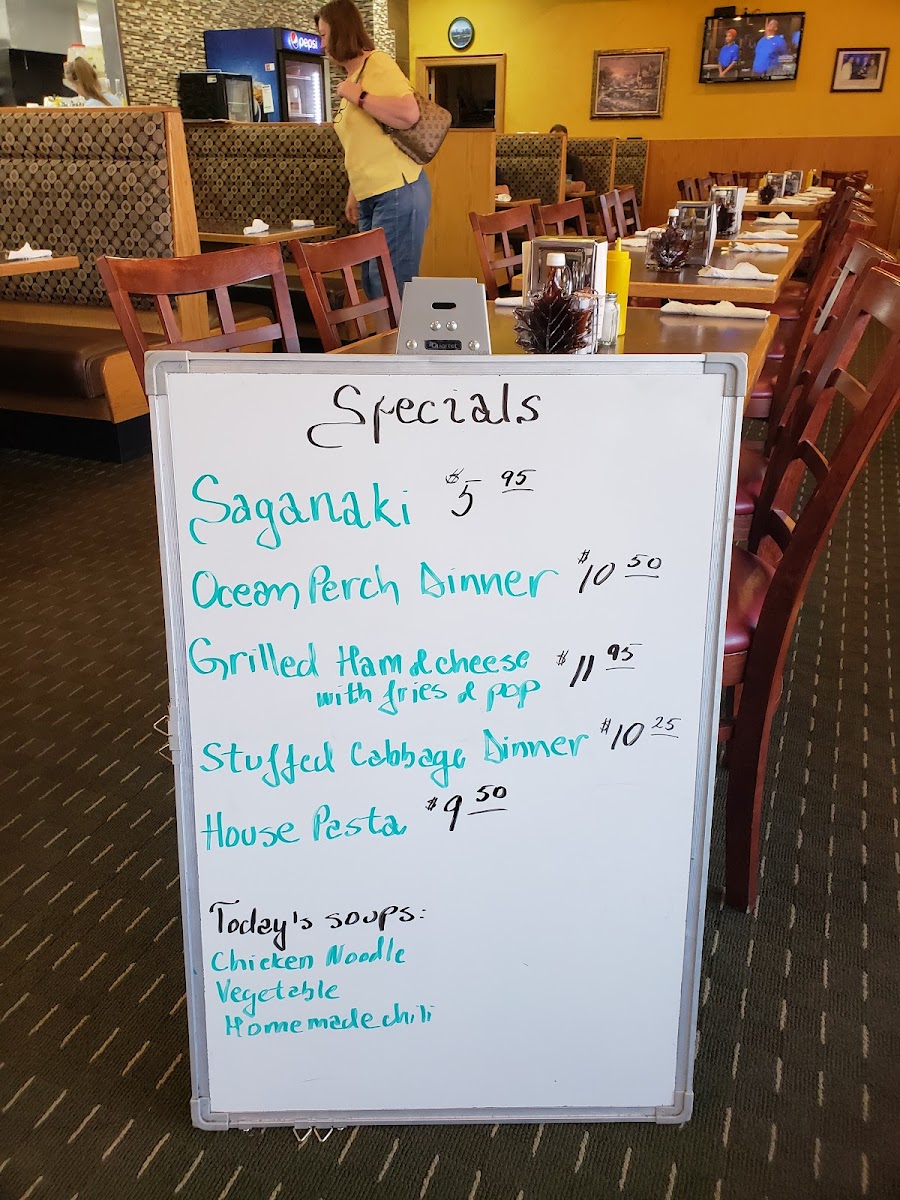 pepsi
Specials
Saganaki $5 95
Ocean Perch Dinner $10 50
Grilled Ham & cheese $11 95
with fries & pop
Stuffed Cabbage Dinner $10 25
House Pasta $9 50
Today's soups:
Chicken Noodle
Vegetable
Homemade chili